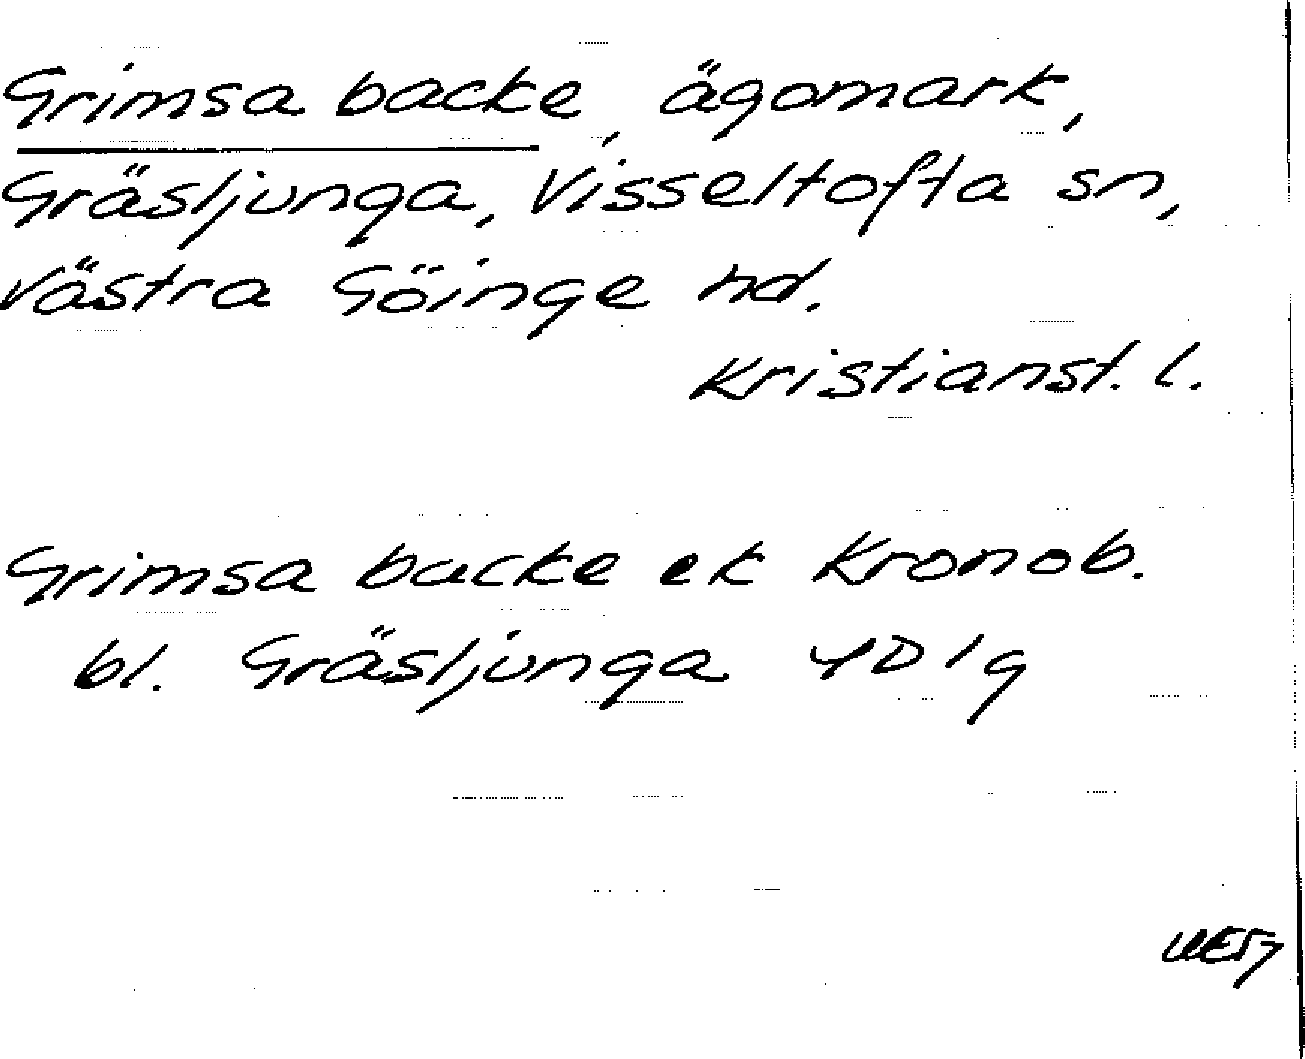 Grimsa backe, ägomark,
Gräsljunga, Visseltofta sn,
Västra Göinge hd.
Kristianst. l.
Grimsa backe ek Kronob.
bl. Gräsljunga 4D1g